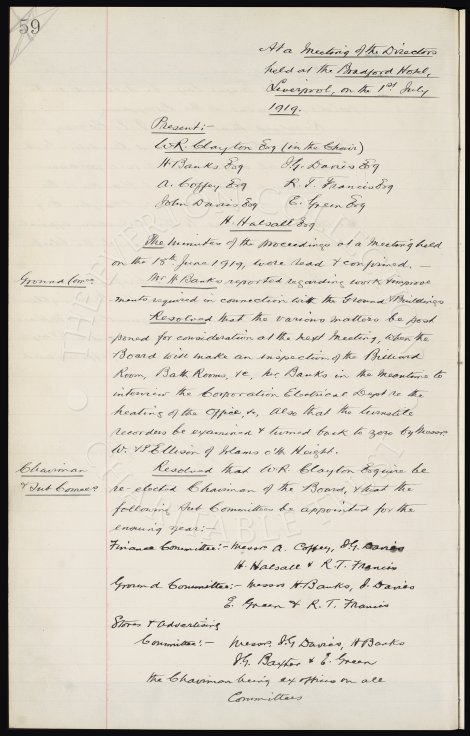 59
At a Meeting of the Directors
held at the Bradford Hotel,
Liverpool, on the 1st July
1919.
Present:-
W.R. Clayton Esq (in the Chair)
H Banks Esq J.G. Davies Esq
A. Coffey Esq R.T. Francis Esq
John Davies Esq E. Green Esq
H. Halsall Esq
The minutes of the proceedings at a Meeting held
on the 18th June 1919, were read & confirmed. —
Ground Comee. Mr H Banks reported regarding work & improve
ments required in connection with the Ground & Buildings
Resolved that the various matters be post
poned for consideration at the next Meeting, when the
Board will make an inspection of the Billiard
Room, Bath Rooms, &c, Mr Banks in the meantime to
interview the Corporation Electrical Dept re the
heating of the Office, &c, Also that the turnstile
recorders be examined & turned back to zero by Messrs
W. & P Ellison of Irlams o'th Height.
Chairman
& Sub Comees Resolved that W.R. Clayton Esquire be
re-elected Chairman of the Board, & that the
following Sub Committees be appointed for the
ensuing year:-
Finance Committee:- Messrs A. Coffey, J.G. Davies
H. Halsall & R.T. Francis
Ground Committee:- Messrs H Banks, J. Davies
E. Green & R.T. Francis
Stores & Advertising
Committee:- Messrs, J.G Davies, H Banks
J.G. Baxter & E. Green
the Chairman being ex officio on all
Committees